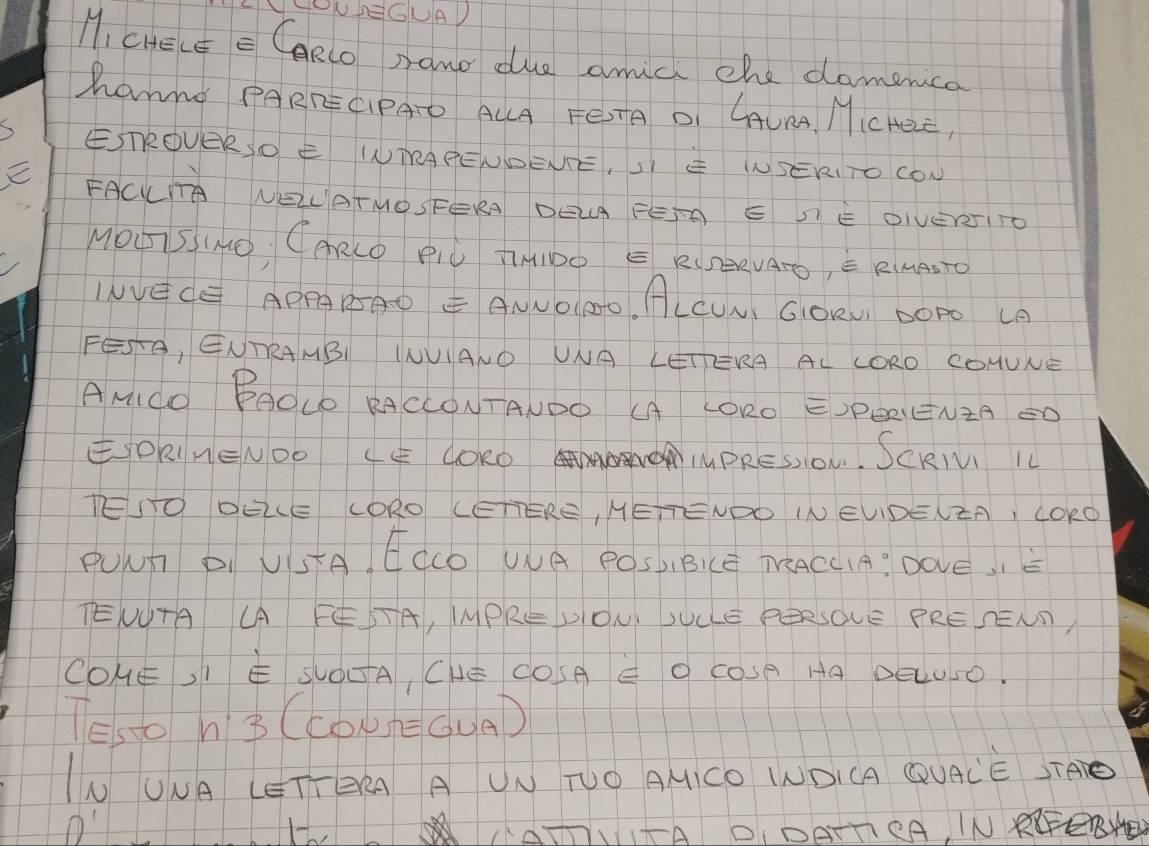 (CONSEGUA)
MICHELE E CARLO sono due amici che domenica
hanno PARTECIPATO ALLA FESTA DI LAURA. MICHELE,
ESTROVERSO E INTRAPENDENTE, SI È INSERITO CON
FACILITÀ NELL'ATMOSFERA DELLA FESTA E SI È DIVERTITO
MOLTISSIMO; CARLO PIÙ TIMIDO E RISERVATO, È RIMASTO
INVECE APPARTATO E ANNOIATO. ALCUNI GIORNI DOPO LA
FESTA, ENTRAMBI INVIANO UNA LETTERA AL LORO COMUNE
AMICO PAOLO RACCONTANDO LA LORO ESPERIENZA ED
ESPRIMENDO LE LORO IMPRESSIONI. SCRIVI IL
TESTO DELLE LORO LETTERE, METTENDO IN EVIDENZA I LORO
PUNTI DI VISTA. ECCO UNA POSSIBILE TRACCIA: DOVE SI È
TENUTA LA FESTA, IMPRESSIONI SULLE PERSONE PRESENTI,
COME SI È SVOLTA, CHE COSA È O COSA HA DELUSO.
TESTO n°3 (CONSEGUA)
IN UNA LETTERA A UN TUO AMICO INDICA QUAL'È STATO
L'ATTIVITÀ DIDATTICA, IN
S
E